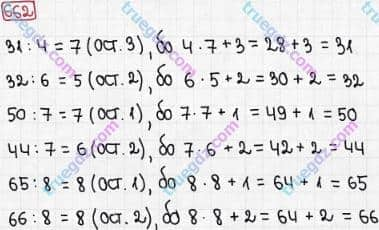 662
31 : 4 = 7 (ост. 3), бо 4 · 7 + 3 = 28 + 3 = 31
32 : 6 = 5 (ост. 2), бо 6 · 5 + 2 = 30 + 2 = 32
50 : 7 = 7 (ост. 1), бо 7 · 7 + 1 = 49 + 1 = 50
44 : 7 = 6 (ост. 2), бо 7 · 6 + 2 = 42 + 2 = 44
65 : 8 = 8 (ост. 1), бо 8 · 8 + 1 = 64 + 1 = 65
66 : 8 = 8 (ост. 2), бо 8 · 8 + 2 = 64 + 2 = 66
truegdz.com